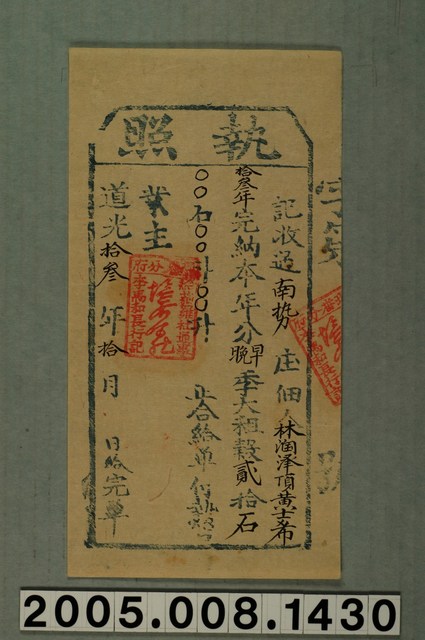 執照
記收過南勢庄佃人林潤澤頂黃士希
拾叁年完納本年分早晚季大租穀貳拾石
〇〇石〇〇〇〇升
合給單付執照
業主
道光拾叁年拾月 日給完單
2005.008.1430